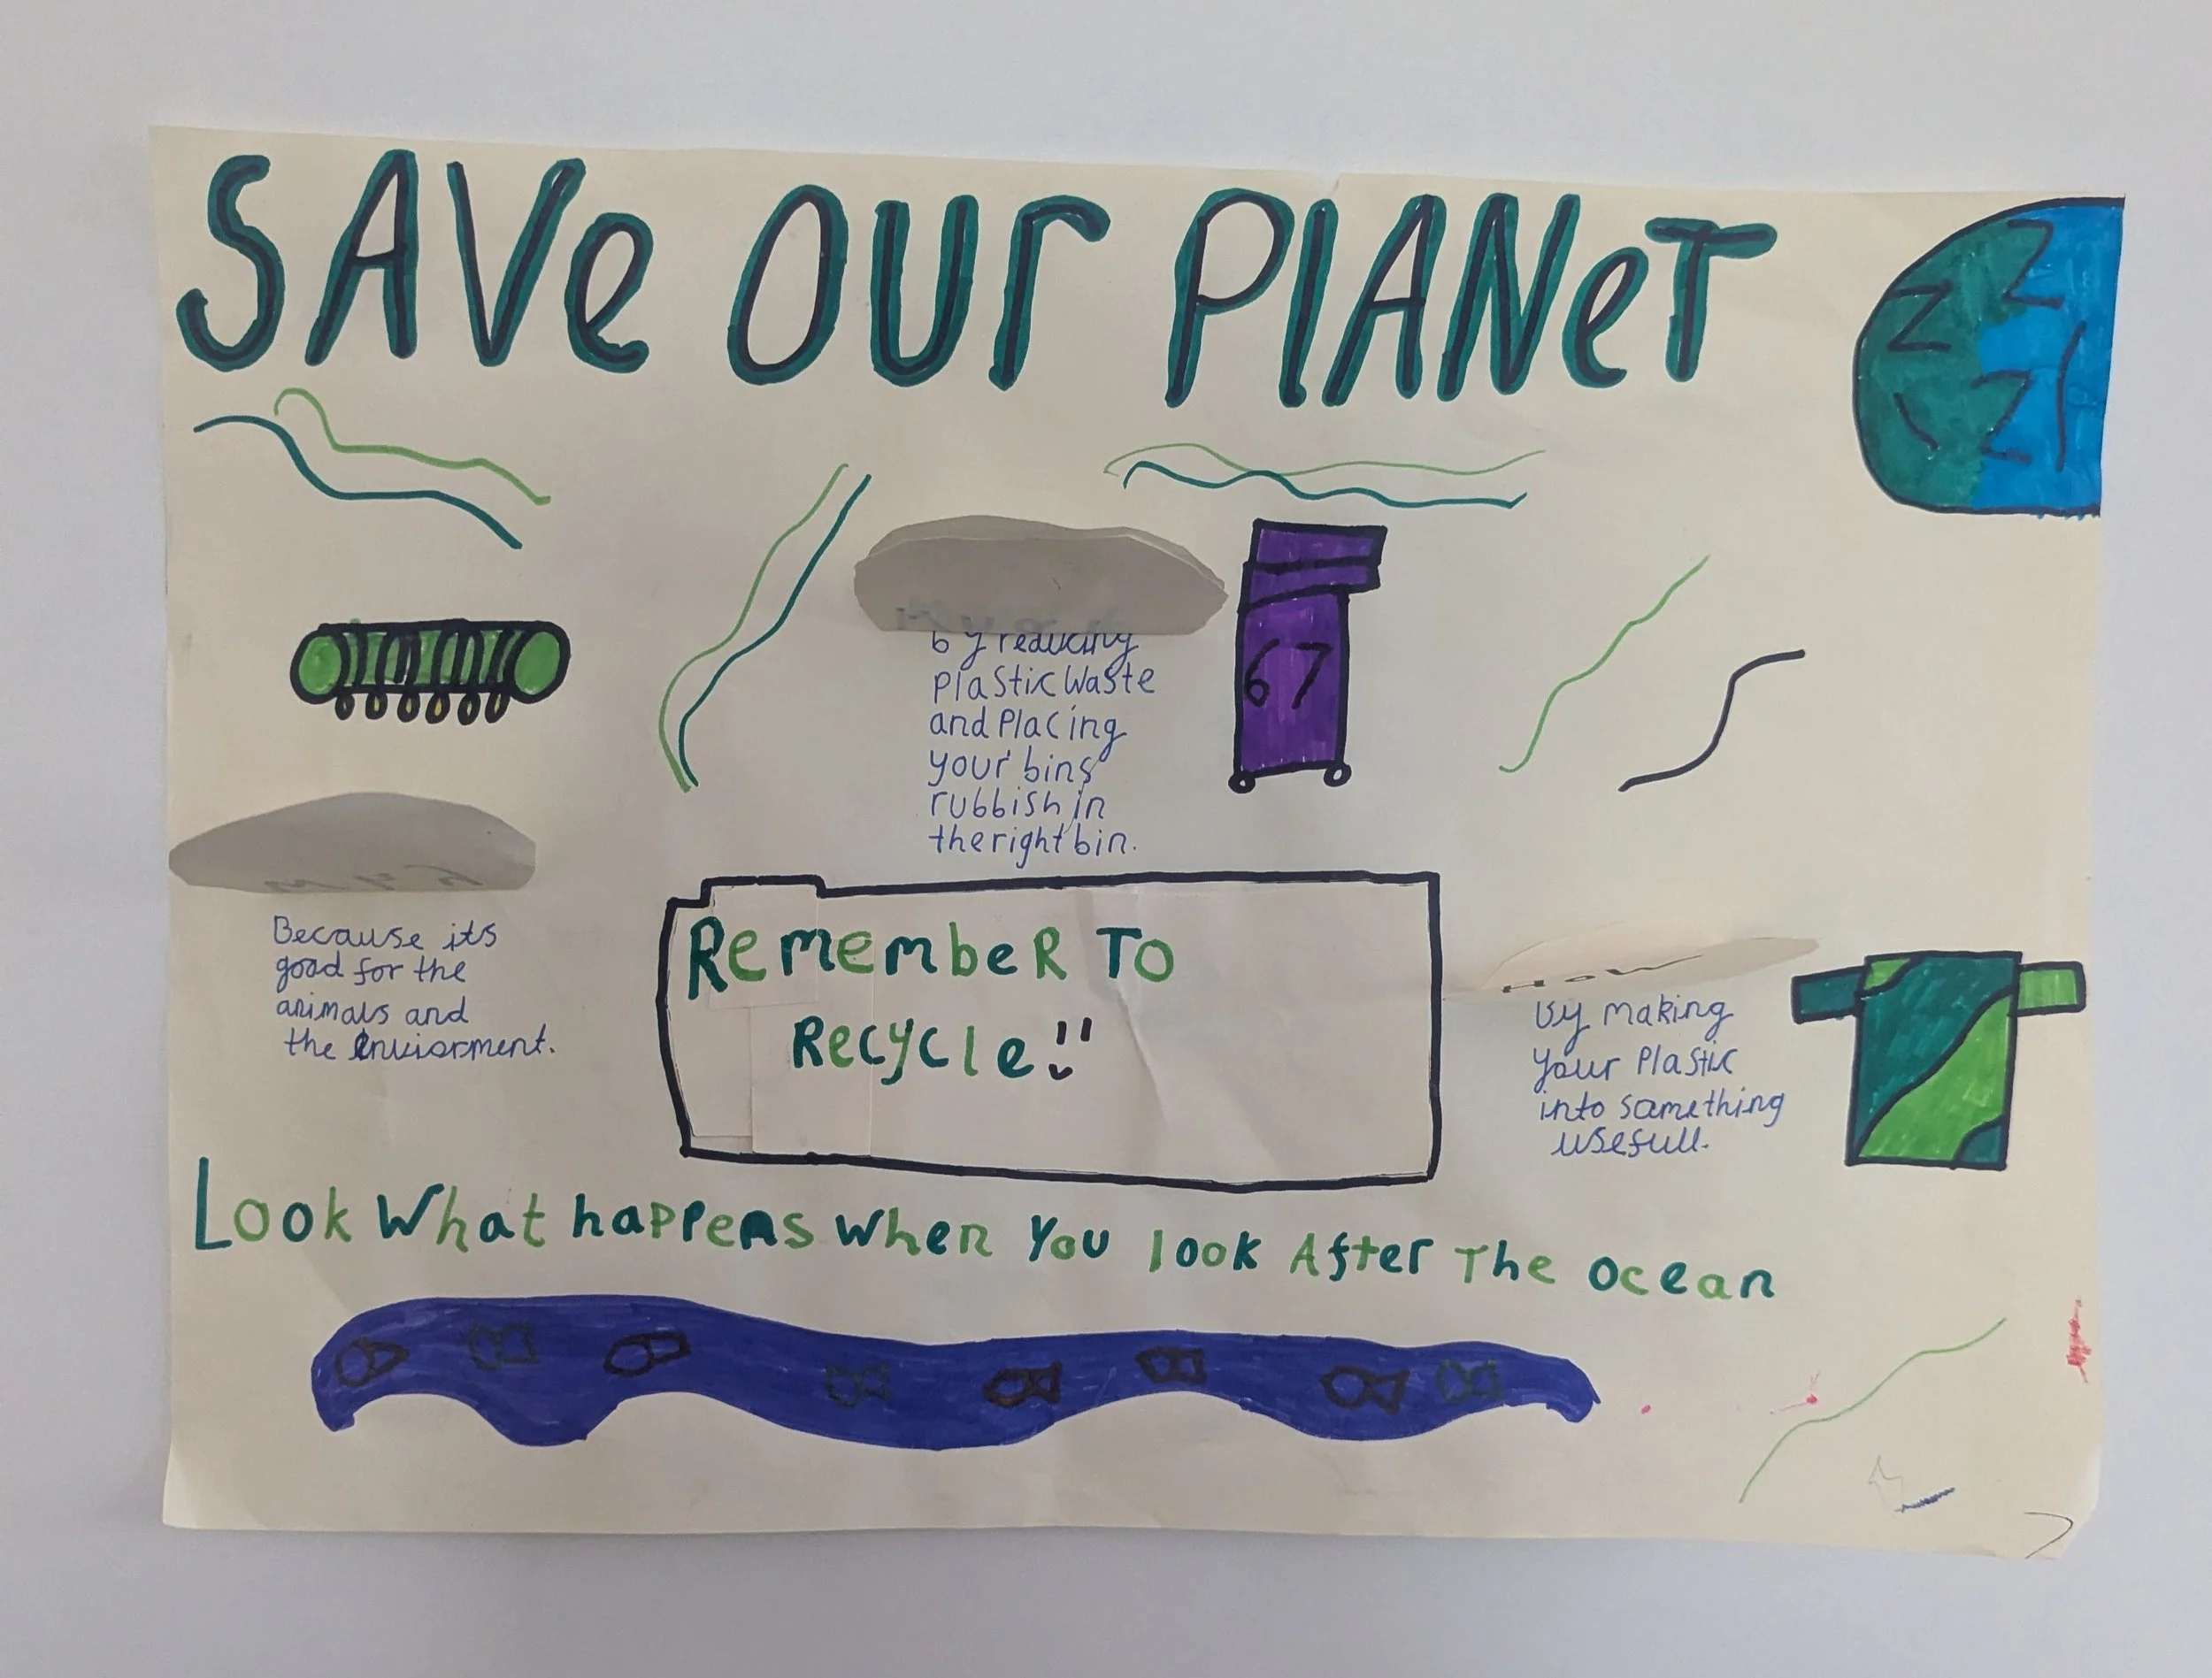 SAVe OUr PlANeT
by reducing
plastic waste
and placing
your bins
rubbish in
the right bin.
67
Because its
good for the
animals and
the enviorment.
RemembeR To
Recycle!!
HOW
By making
your plastic
into something
usefull.
Look What happens when you look After The ocean